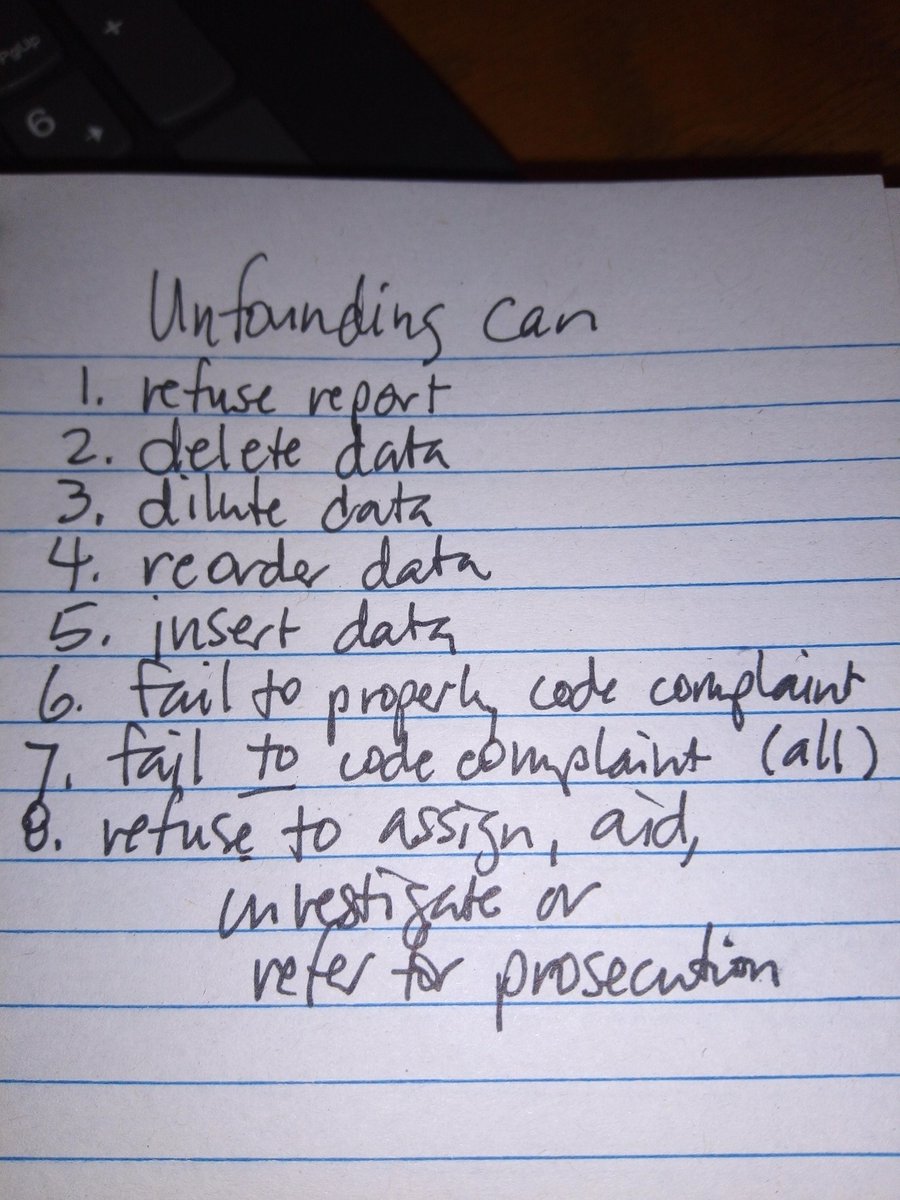 PgUp
+
6
Unfounding can
1. refuse report
2. delete data
3. dilute data
4. reorder data
5. insert data
6. fail to properly code complaint
7. fail to code complaint (all)
8. refuse to assign, aid,
investigate or
refer for prosecution